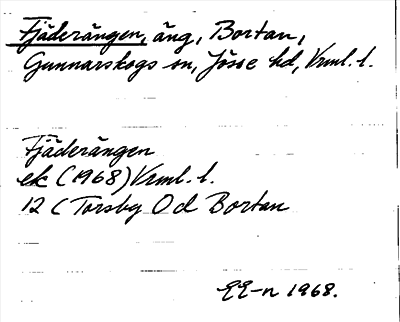 Fjäderängen, äng, Bortan,
Gunnarskogs sn, Jösse hd, Vrml. l.
Fjäderängen
ek (1968) Vrml. l.
12 C Torsby Od Bortan
EE-n 1968.